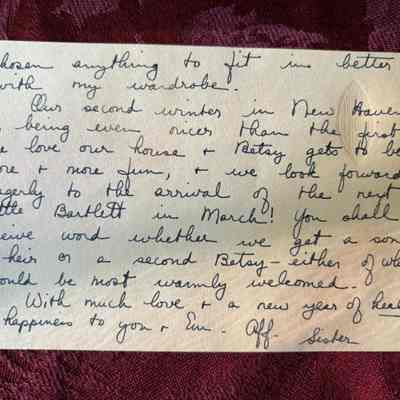 hosen anything to fit in better
with my wardrobe.
Our second winter in New Haven
being even nicer than the first
e love our house + Betsy gets to be
ore + more fun, + we look forward
agerly to the arrival of the next
ttle Bartlett in March! You shall
ceive word whether we get a son
+ heir or a second Betsy – either of wh
ould be most warmly welcomed.
With much love + a new year of heal
happiness to you + Em. Aff. Sister